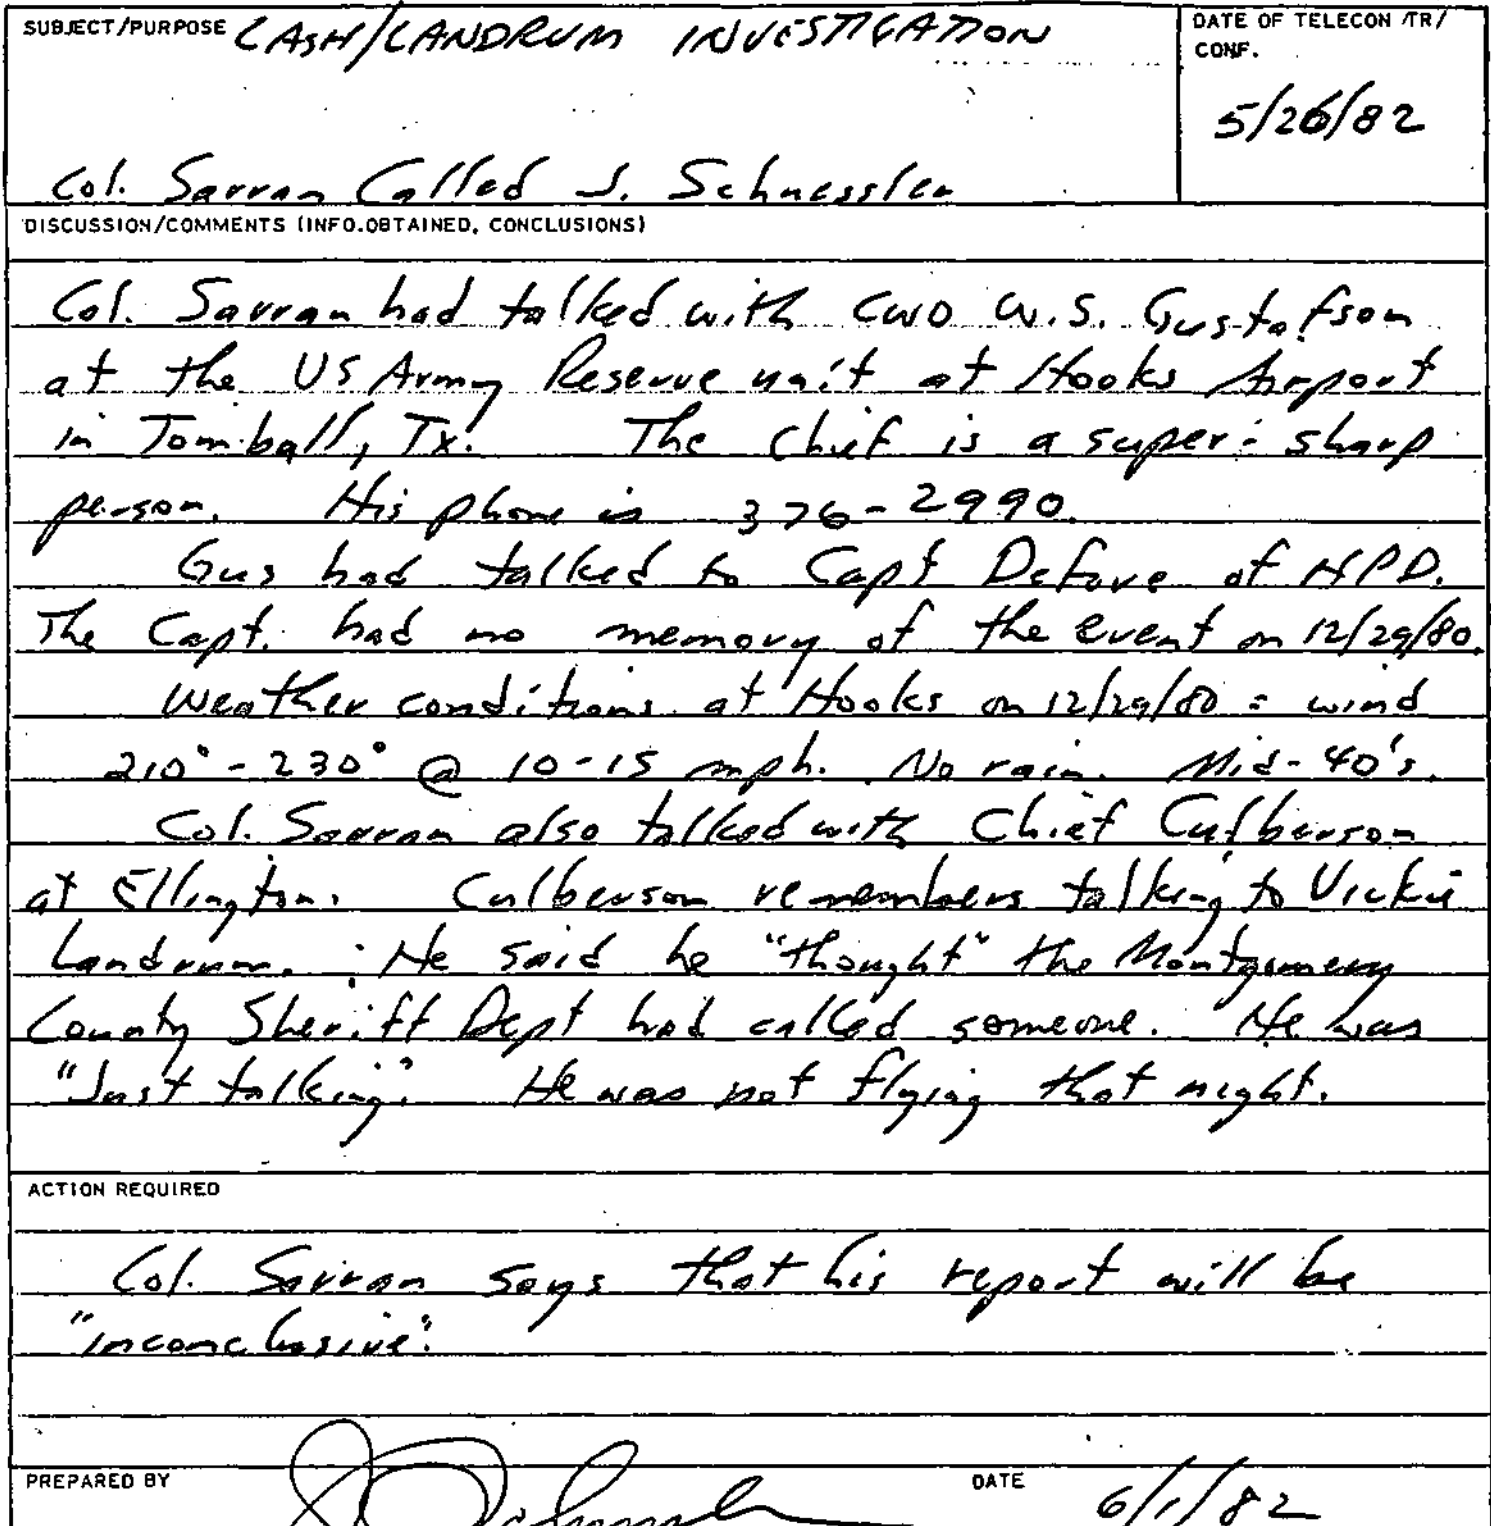 SUBJECT/PURPOSE CASH/LANDRUM INVESTIGATION
DATE OF TELECON /TR/
CONF.
5/26/82
Col. Sarran Called J. Schuessler
DISCUSSION/COMMENTS (INFO.OBTAINED, CONCLUSIONS)
Col. Sarran had talked with CWO W.S. Gustafson
at the US Army Reserve unit at Hooks Airport
in Tomball, Tx. The Chief is a super-sharp
person. His phone is 376-2990.
Gus had talked to Capt Defore of HPD.
The Capt. had no memory of the event on 12/29/80.
Weather conditions at Hooks on 12/29/80 = wind
210° - 230° @ 10-15 mph. No rain. Mid-40's.
Col. Sarran also talked with Chief Culberson
at Ellington. Culberson remembers talking to Vickie
Landrum. He said he "thought" the Montgomery
County Sheriff Dept had called someone. He was
"Just talking." He was not flying that night.
ACTION REQUIRED
Col. Sarran says that his report will be
"inconclusive".
PREPARED BY
DATE 6/1/82